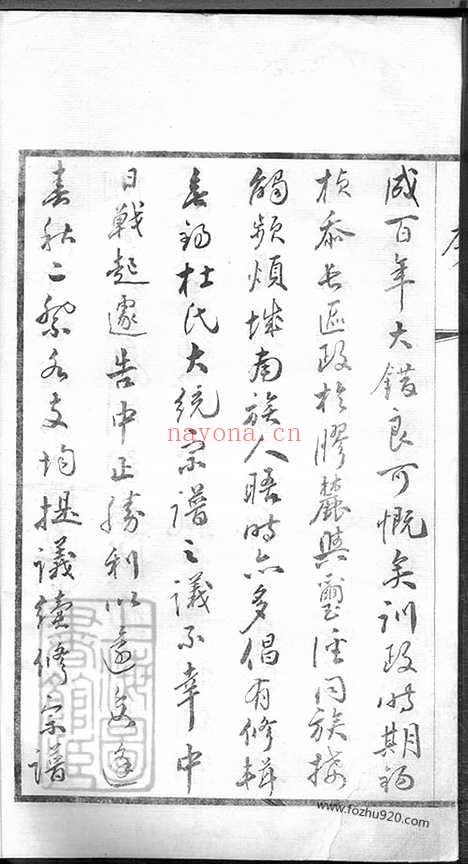 序
成百年大錯良可慨矣訓政時期錫
楨忝長區政於膠麓與璽涇同族接
觸頻煩城南族人晤時亦多倡有修輯
無錫杜氏大統宗譜之議不幸中
日戰起遽告中止勝利以還又逢
春秋二祭各支均提議續修宗譜
上海圖書館藏
nayona.cn
www.fozhu920.com